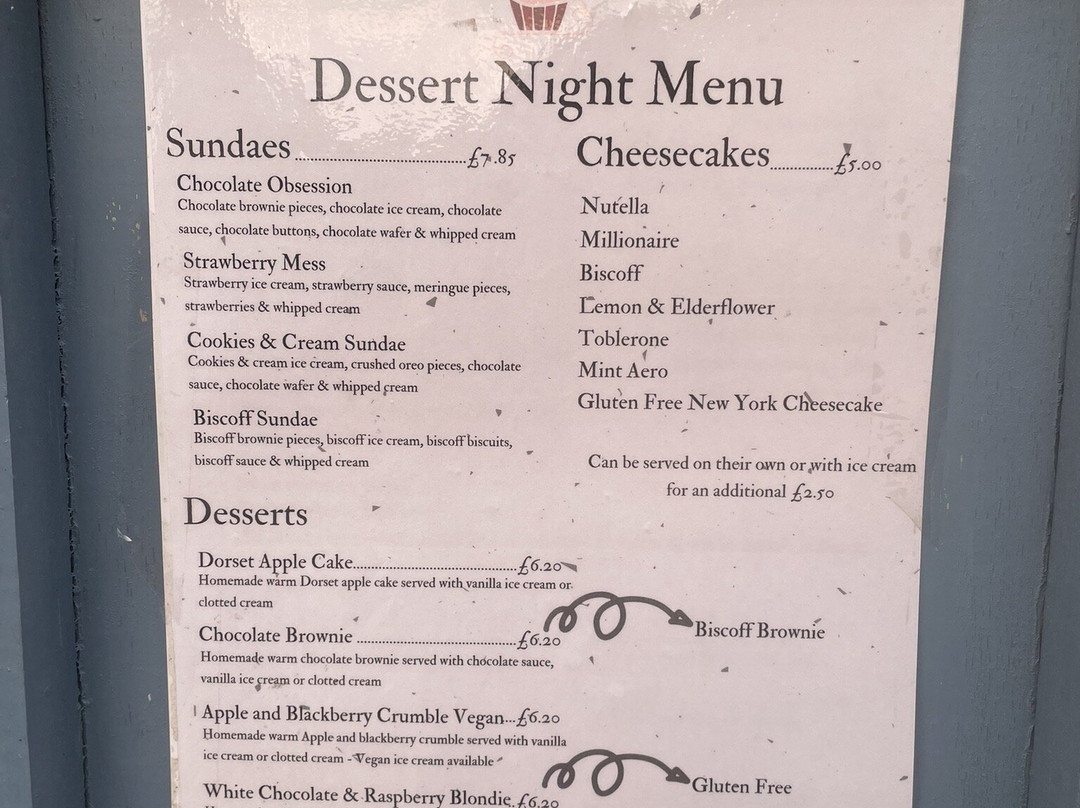 Dessert Night Menu
Sundaes..........£7.85
Chocolate Obsession
Chocolate brownie pieces, chocolate ice cream, chocolate
sauce, chocolate buttons, chocolate wafer & whipped cream
Strawberry Mess
Strawberry ice cream, strawberry sauce, meringue pieces,
strawberries & whipped cream
Cookies & Cream Sundae
Cookies & cream ice cream, crushed oreo pieces, chocolate
sauce, chocolate wafer & whipped cream
Biscoff Sundae
Biscoff brownie pieces, biscoff ice cream, biscoff biscuits,
biscoff sauce & whipped cream
Cheesecakes..........£5.00
Nutella
Millionaire
Biscoff
Lemon & Elderflower
Toblerone
Mint Aero
Gluten Free New York Cheesecake
Can be served on their own or with ice cream
for an additional £2.50
Desserts
Dorset Apple Cake..........£6.20
Homemade warm Dorset apple cake served with vanilla ice cream or
clotted cream
Chocolate Brownie..........£6.20
Biscoff Brownie
Homemade warm chocolate brownie served with chocolate sauce,
vanilla ice cream or clotted cream
Apple and Blackberry Crumble Vegan...£6.20
Homemade warm Apple and blackberry crumble served with vanilla
ice cream or clotted cream - Vegan ice cream available
White Chocolate & Raspberry Blondie.£6.20
Gluten Free